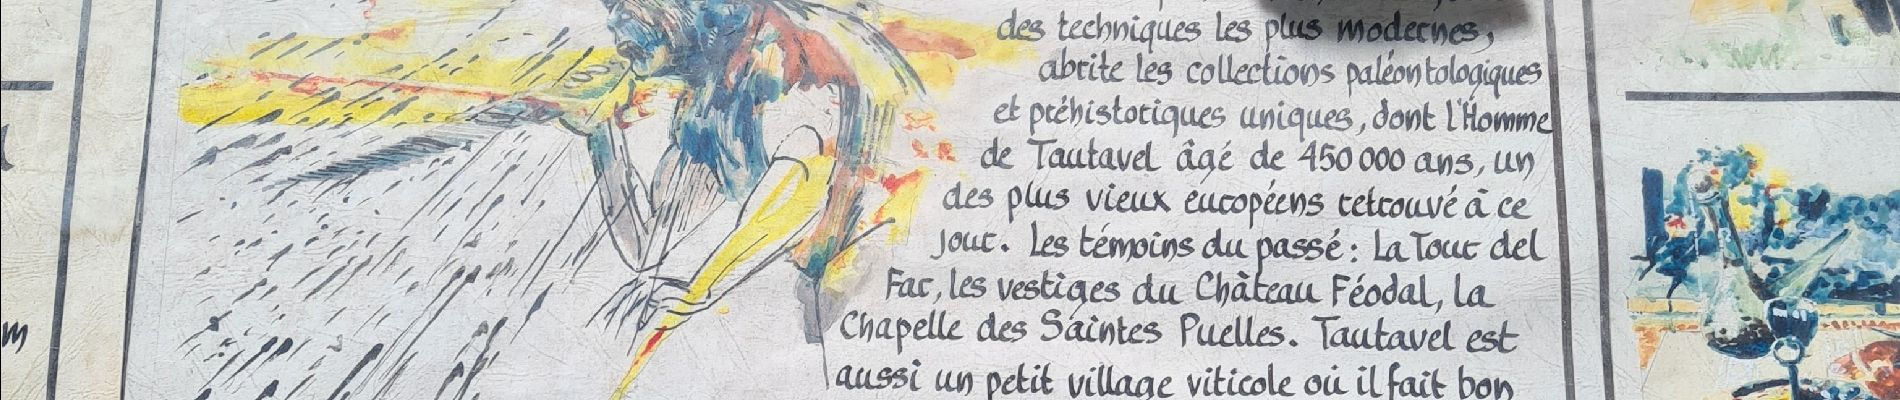 des techniques les plus modernes,
abrite les collections paléontologiques
et préhistoriques uniques, dont l'Homme
de Tautavel âgé de 450 000 ans, un
des plus vieux européens retrouvé à ce
jour. Les témoins du passé : La Tour del
Far, les vestiges du Château Féodal, la
Chapelle des Saintes Puelles. Tautavel est
aussi un petit village viticole où il fait bon